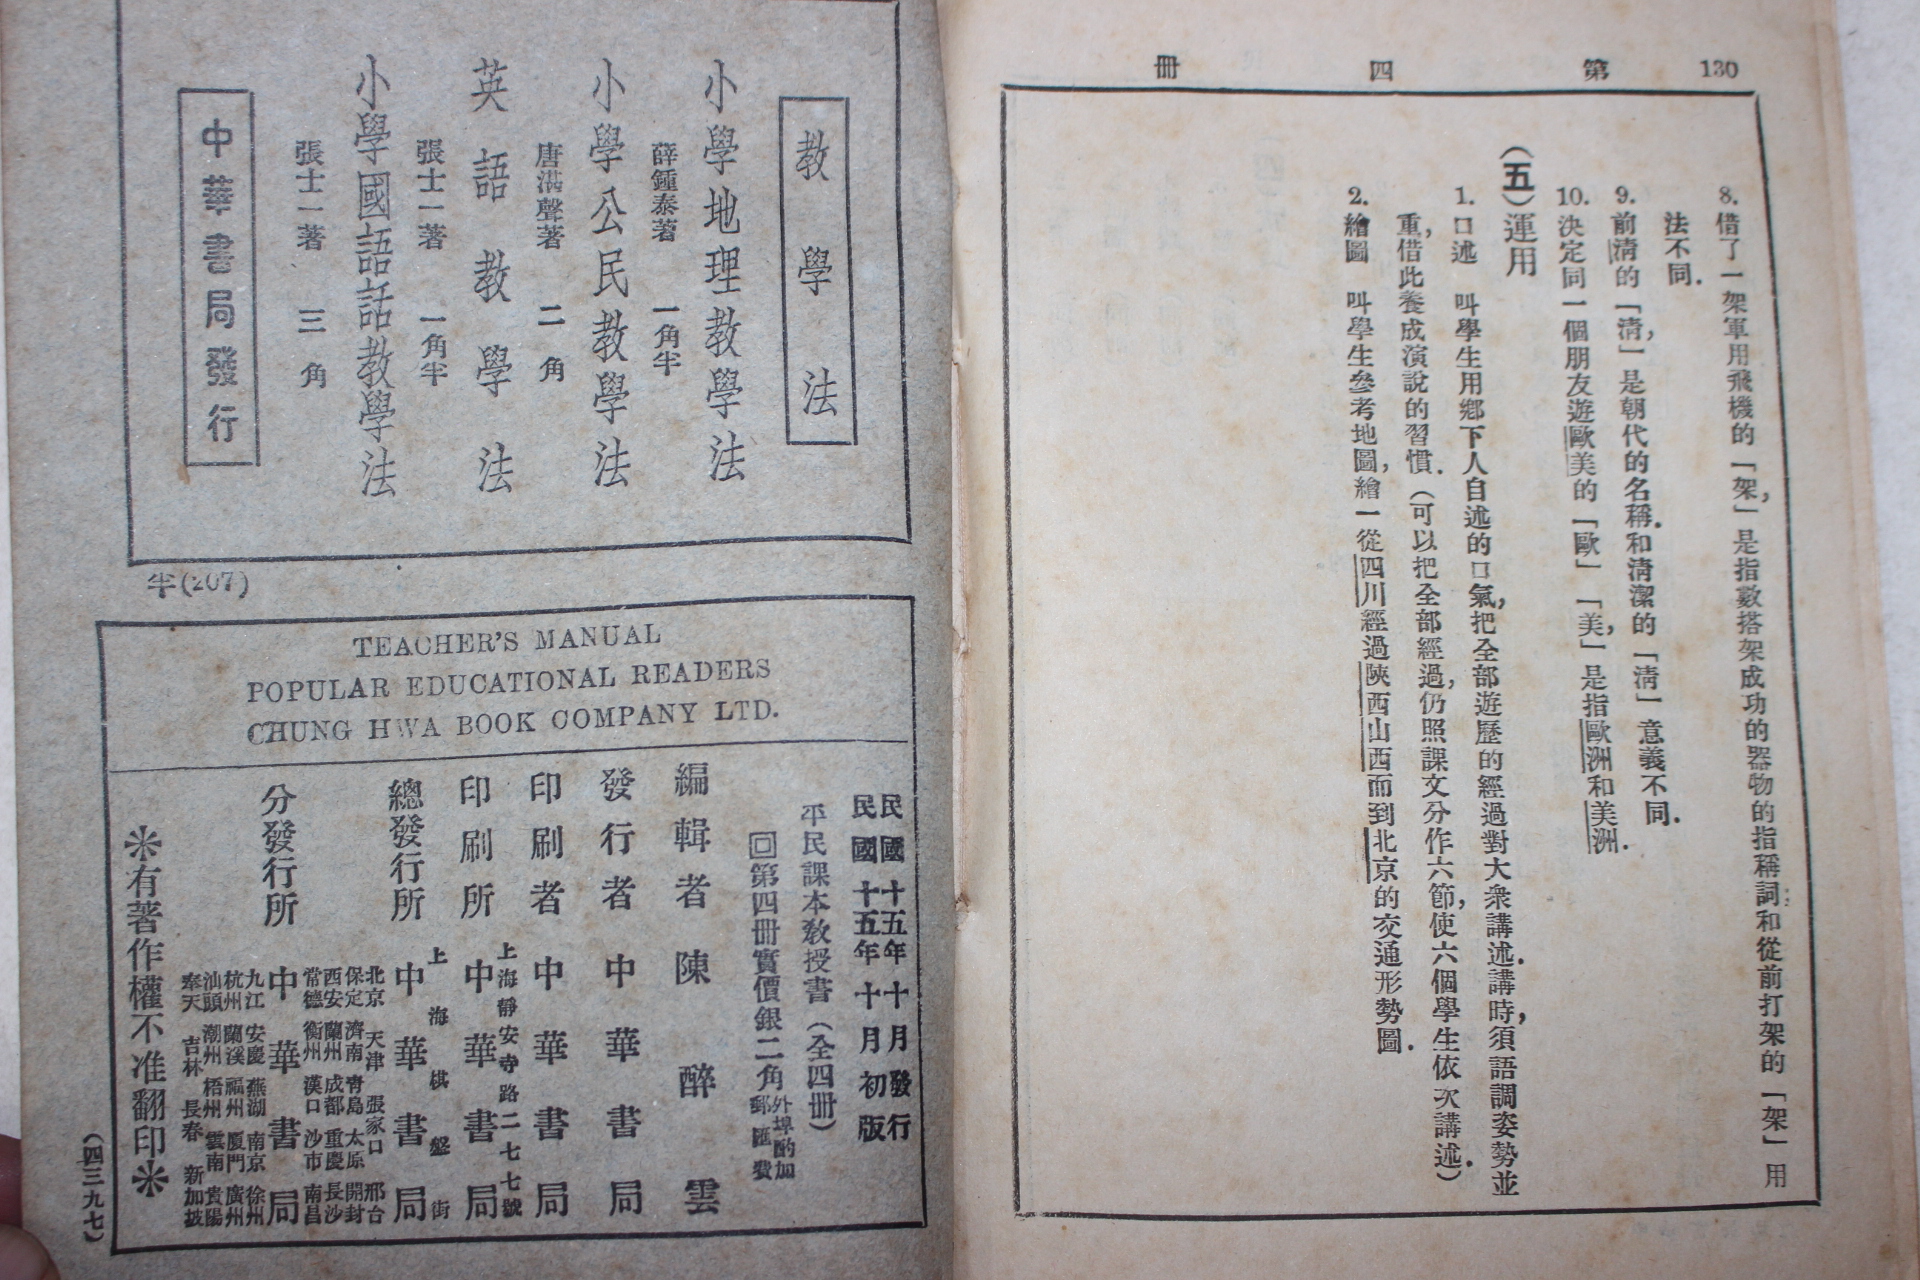 130　第四冊
8. 借了一架軍用飛機的「架」，是指數搭架成功的器物的指稱詞；和從前打架的「架」用
法不同．
9. 前清的「清」，是朝代的名稱．和清潔的「清」意義不同．
10. 決定同一個朋友遊歐美的「歐」「美」，是指歐洲和美洲．
（五）運用
1. 口述　叫學生用鄉下人自述的口氣，把全部遊歷的經過對大衆講述．講時，須語調姿勢並
重，借此養成演說的習慣．（可以把全部經過，仍照課文分作六節，使六個學生依次講述．）
2. 繪圖　叫學生參考地圖，繪一從四川經過陝西山西而到北京的交通形勢圖．
教學法
小學地理教學法
薛鍾泰著　一角半
小學公民教學法
唐湛聲著　二角
英語教學法
張士一著　一角半
小學國語話教學法
張士一著　三角
中華書局發行
半(207)
TEACHER'S MANUAL
POPULAR EDUCATIONAL READERS
CHUNG HWA BOOK COMPANY LTD.
民國十五年十月發行
民國十五年十月初版
平民課本教授書（全四冊）
回第四冊實價銀二角
外埠酌加
郵匯費
編輯者　陳醉雲
發行者　中華書局
印刷者　中華書局
上海靜安寺路二七七號
印刷所　中華書局
上海棋盤街
總發行所　中華書局
分發行所　中華書局
北京　天津　張家口　邢台
保定　濟南　青島　太原　開封
西安　蘭州　成都　重慶　長沙
常德　衡州　漢口　沙市　南昌
九江　安慶　蕪湖　南京　徐州
杭州　蘭溪　福州　廈門　廣州
汕頭　潮州　梧州　雲南　貴陽
奉天　吉林　長春　新加坡
＊有著作權不准翻印＊
（四三九七）